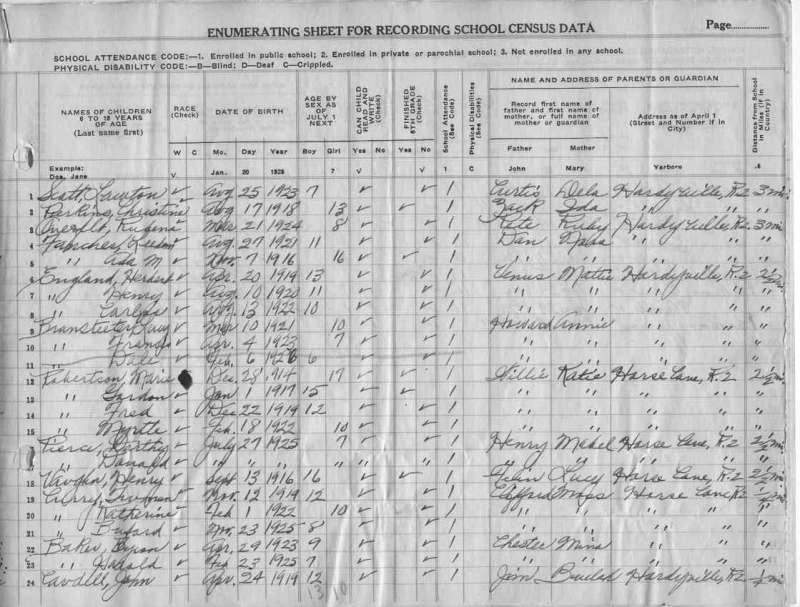 ENUMERATING SHEET FOR RECORDING SCHOOL CENSUS DATA Page
SCHOOL ATTENDANCE CODE:—1. Enrolled in public school; 2. Enrolled in private or parochial school; 3. Not enrolled in any school.
PHYSICAL DISABILITY CODE:—B—Blind; D—Deaf C—Crippled.
NAMES OF CHILDREN 6 TO 18 YEARS OF AGE (Last name first)
RACE (Check)
W C
DATE OF BIRTH
Mo. Day Year
AGE BY SEX AS OF JULY 1 NEXT
Boy Girl
CAN CHILD READ AND WRITE (Check)
Yes No
FINISHED 8TH GRADE (Check)
Yes No
School Attendance (See Code)
Physical Disabilities (See Code)
NAME AND ADDRESS OF PARENTS OR GUARDIAN
Record first name of father and first name of mother, or full name of mother or guardian
Father Mother
Address as of April 1 (Street and Number if in City)
Distance from School in Miles (if in Country)
Example: Doe, Jane V Jan. 20 1923 7 V V 1 C John Mary .5
1 Scott, Lawton ✓ Aug 25 1923 7 ✓ ✓ 1 Curtis Dela Hardyville, R2 3 mi
2 Perkins, Christine ✓ 17 1918 13 ✓ ✓ 1 Zack Ida " " "
3 ✓ 21 1924 8 ✓ ✓ 1 Pete Ruby Hardyville, R2 3 mi
4 ✓ Aug 27 1921 11 ✓ ✓ 1 Dan " " "
5 " Ada M ✓ Nov. 7 1916 16 ✓ ✓ 1 " " " " "
6 England, Herbert ✓ Apr. 20 1919 13 ✓ ✓ 1 Venus Mattie Hardyville, R.2
7 " Henry ✓ Aug 10 1920 11 ✓ ✓ 1 " " " " "
8 " Carlos ✓ Aug 13 1922 10 ✓ ✓ 1 " " " " "
9 Branstetter, Lucy ✓ Mar 10 1921 10 ✓ ✓ 1 Howard Annie " " "
10 " ✓ Apr. 4 1923 7 ✓ ✓ 1 " " " " "
11 " Dale ✓ Feb. 6 1926 6 ✓ ✓ 1 " " " " "
12 Robertson, Marie Dec. 28 1914 17 ✓ ✓ 1 Willie Katie Horse Cave, R.2 2½ mi
13 " Gordon ✓ Jan 1 1917 15 ✓ ✓ 1 " " " " "
14 " Fred ✓ Dec 22 1919 12 ✓ ✓ 1 " " " " "
15 " Myrtle ✓ Feb. 18 1922 10 ✓ ✓ 1 " " " " "
16 Pierce, Dorthy ✓ July 27 1925 7 ✓ ✓ 1 Henry Mabel Horse Cave, R.2 2½ mi
17 " Donald ✓ " " " " " " 1 " " " " "
18 Vaughn, Henry ✓ Sept 13 1916 16 ✓ ✓ 1 Lucy Horse Cave, R.2 2½ mi
19 ✓ Nov. 12 1919 12 ✓ ✓ 1 Clifford Horse Cave, R2
20 " Katherine ✓ Feb 1 1922 10 ✓ ✓ 1 " " " " "
21 " Buford ✓ 23 1925 8 ✓ ✓ 1 " " " " "
22 Baker, Byron ✓ Apr. 29 1923 9 ✓ ✓ 1 Chester Mina " " "
23 " Harold ✓ Feb 23 1925 7 ✓ ✓ 1 " " " " "
24 Caudill, John ✓ Apr. 24 1919 12 ✓ ✓ 1 Jim Beulah Hardyville, R2
13 10